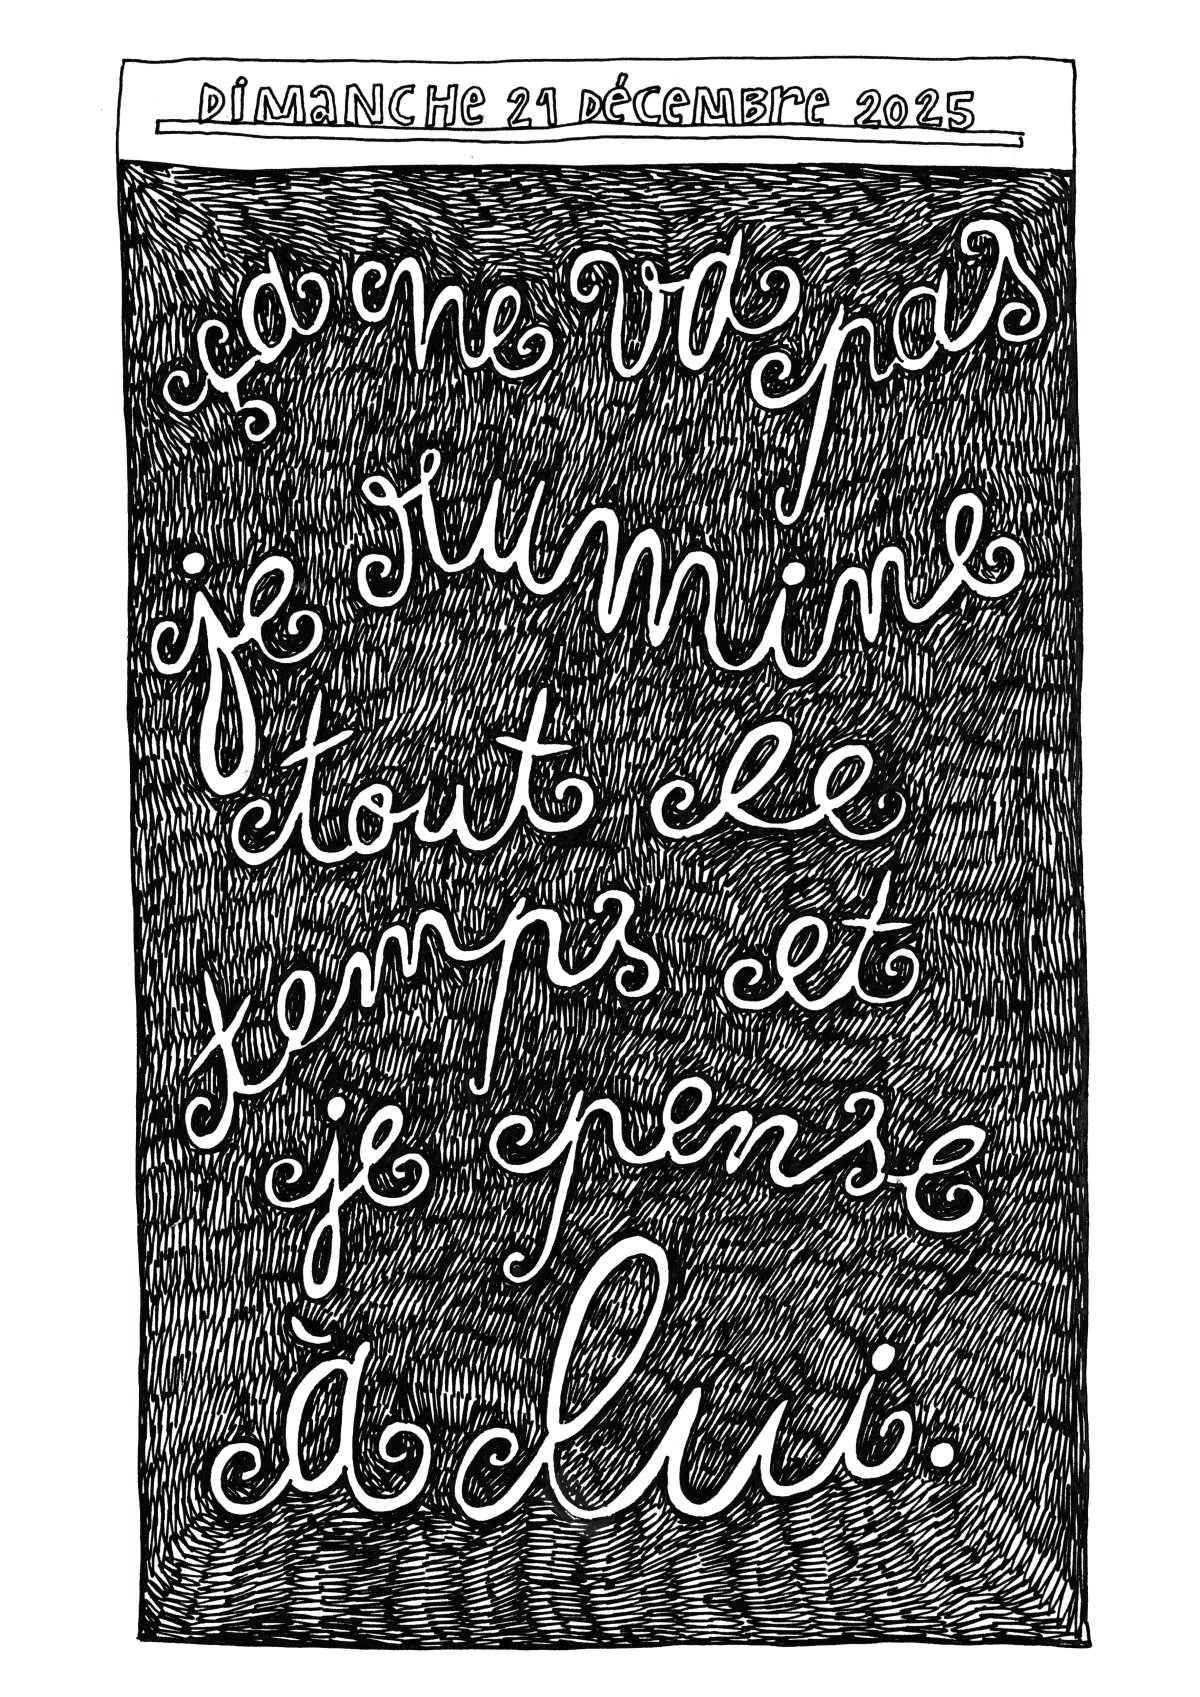 DIMANCHE 21 DÉCEMBRE 2025
ça ne va pas
je rumine
tout le
temps et
je pense
à lui.